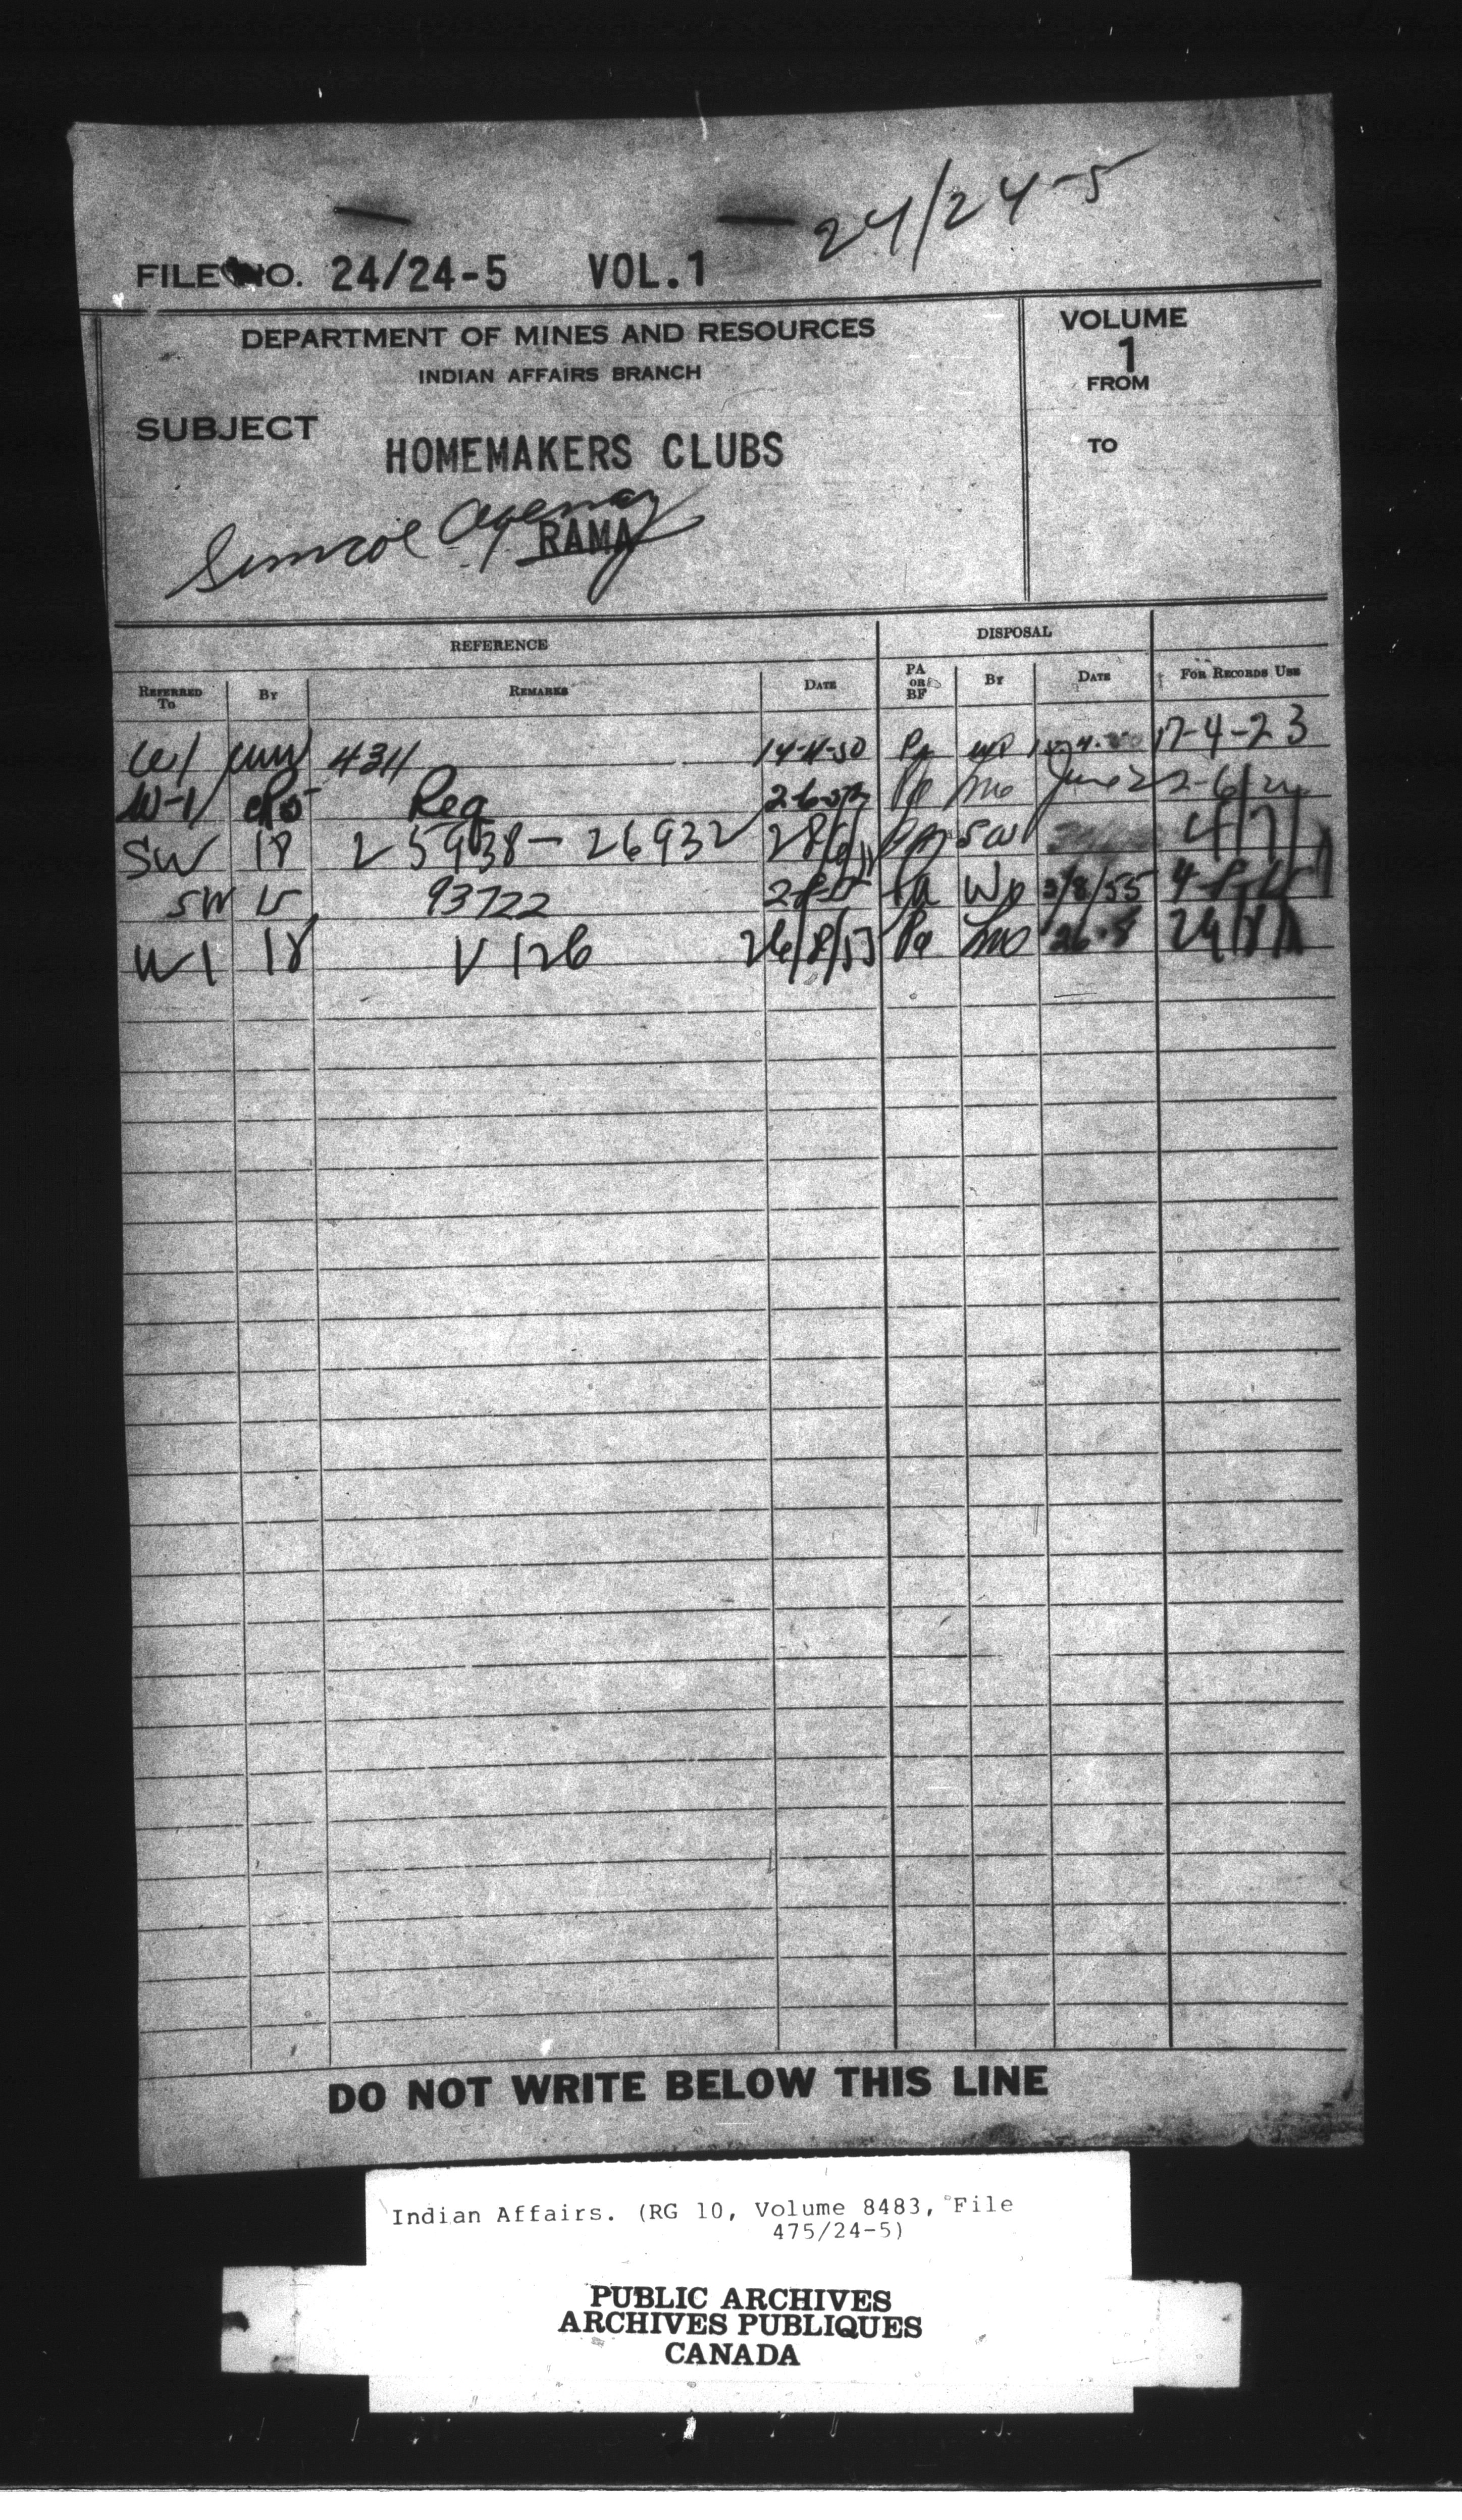 24/24-5
FILE NO. 24/24-5 VOL.1
DEPARTMENT OF MINES AND RESOURCES
INDIAN AFFAIRS BRANCH
VOLUME
1
FROM
TO
SUBJECT
HOMEMAKERS CLUBS
Simcoe Agency
RAMA
REFERENCE DISPOSAL
REFERRED TO BY REMARKS DATE PA OR BF BY DATE FOR RECORDS USE
W1 4311 14-4-50 17-4-23
W-1 Reg Pa June 2
SW 18 25938-26932 SW
SW 15 93722 Pa 3/8/55
W1 18 V126 26/8/55 Pa 26.8
DO NOT WRITE BELOW THIS LINE
Indian Affairs. (RG 10, Volume 8483, File
475/24-5)
PUBLIC ARCHIVES
ARCHIVES PUBLIQUES
CANADA